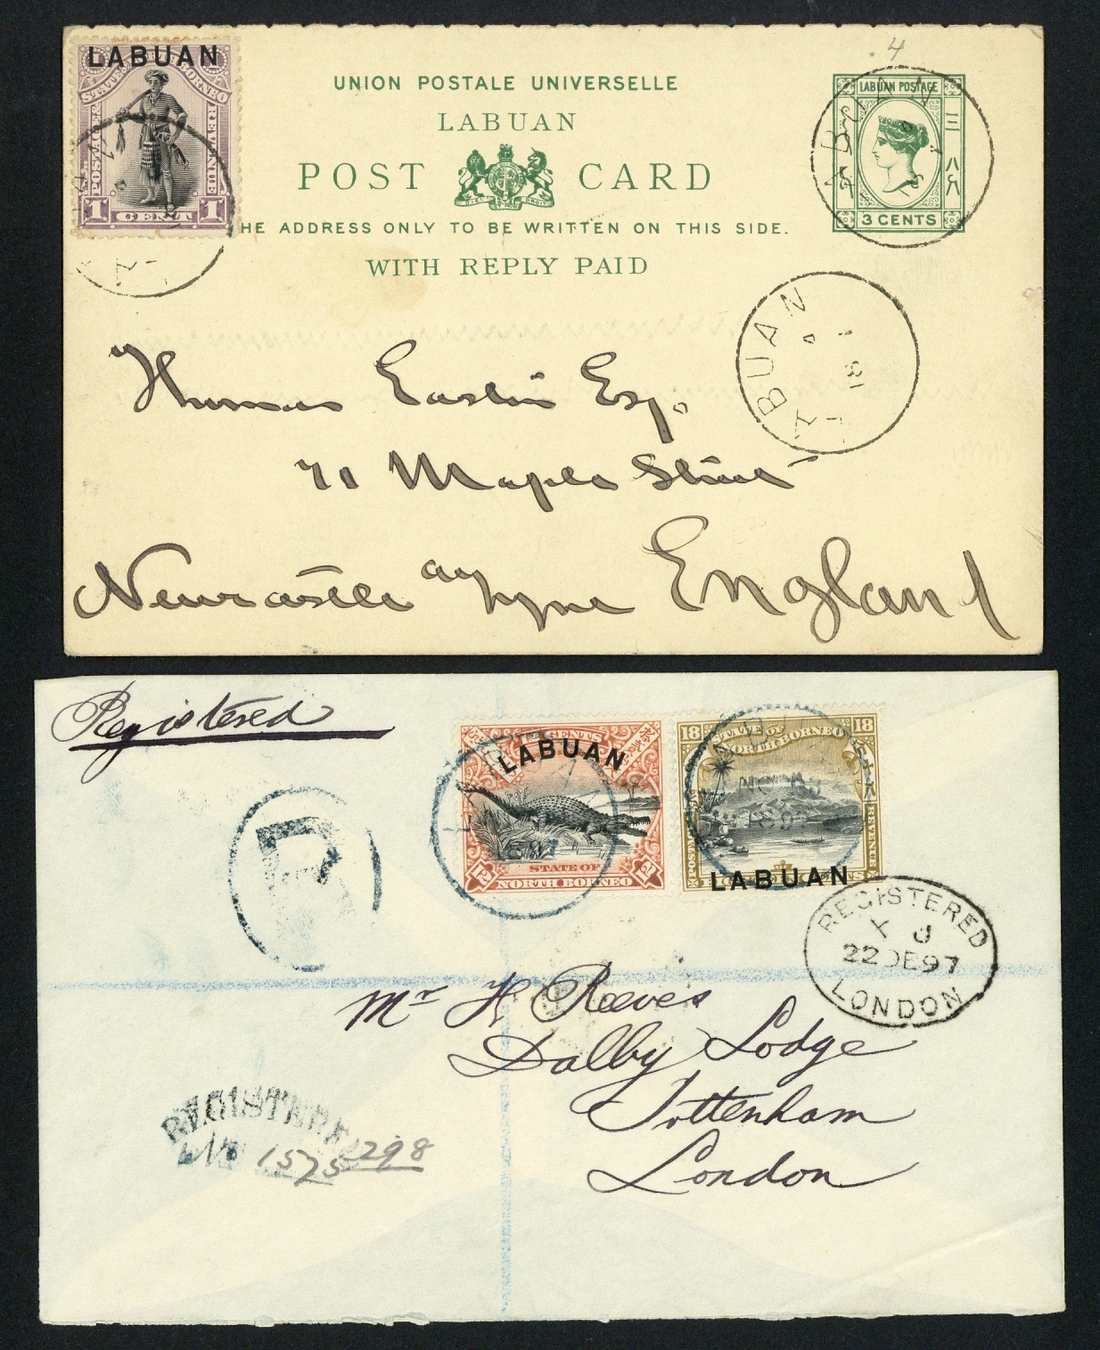 LABUAN
STATE OF NORTH BORNEO
POSTAGE
REVENUE
1 CENT 1
UNION POSTALE UNIVERSELLE
LABUAN
POST CARD
HE ADDRESS ONLY TO BE WRITTEN ON THIS SIDE.
WITH REPLY PAID
4
LABUAN POSTAGE
三 八八
3 CENTS
LABUAN
LABUAN
Thomas Eastin Esq.
71 Maple Street
Newcastle England
Registered
R
CENTS
LABUAN
STATE OF
NORTH BORNEO
18 STATE OF 18
NORTH BORNEO
POSTAGE
REVENUE
LABUAN
REGISTERED
22 DE 97
LONDON
Mr H Reeves
Dalby Lodge
Tottenham
London
REGISTERE
1575 298